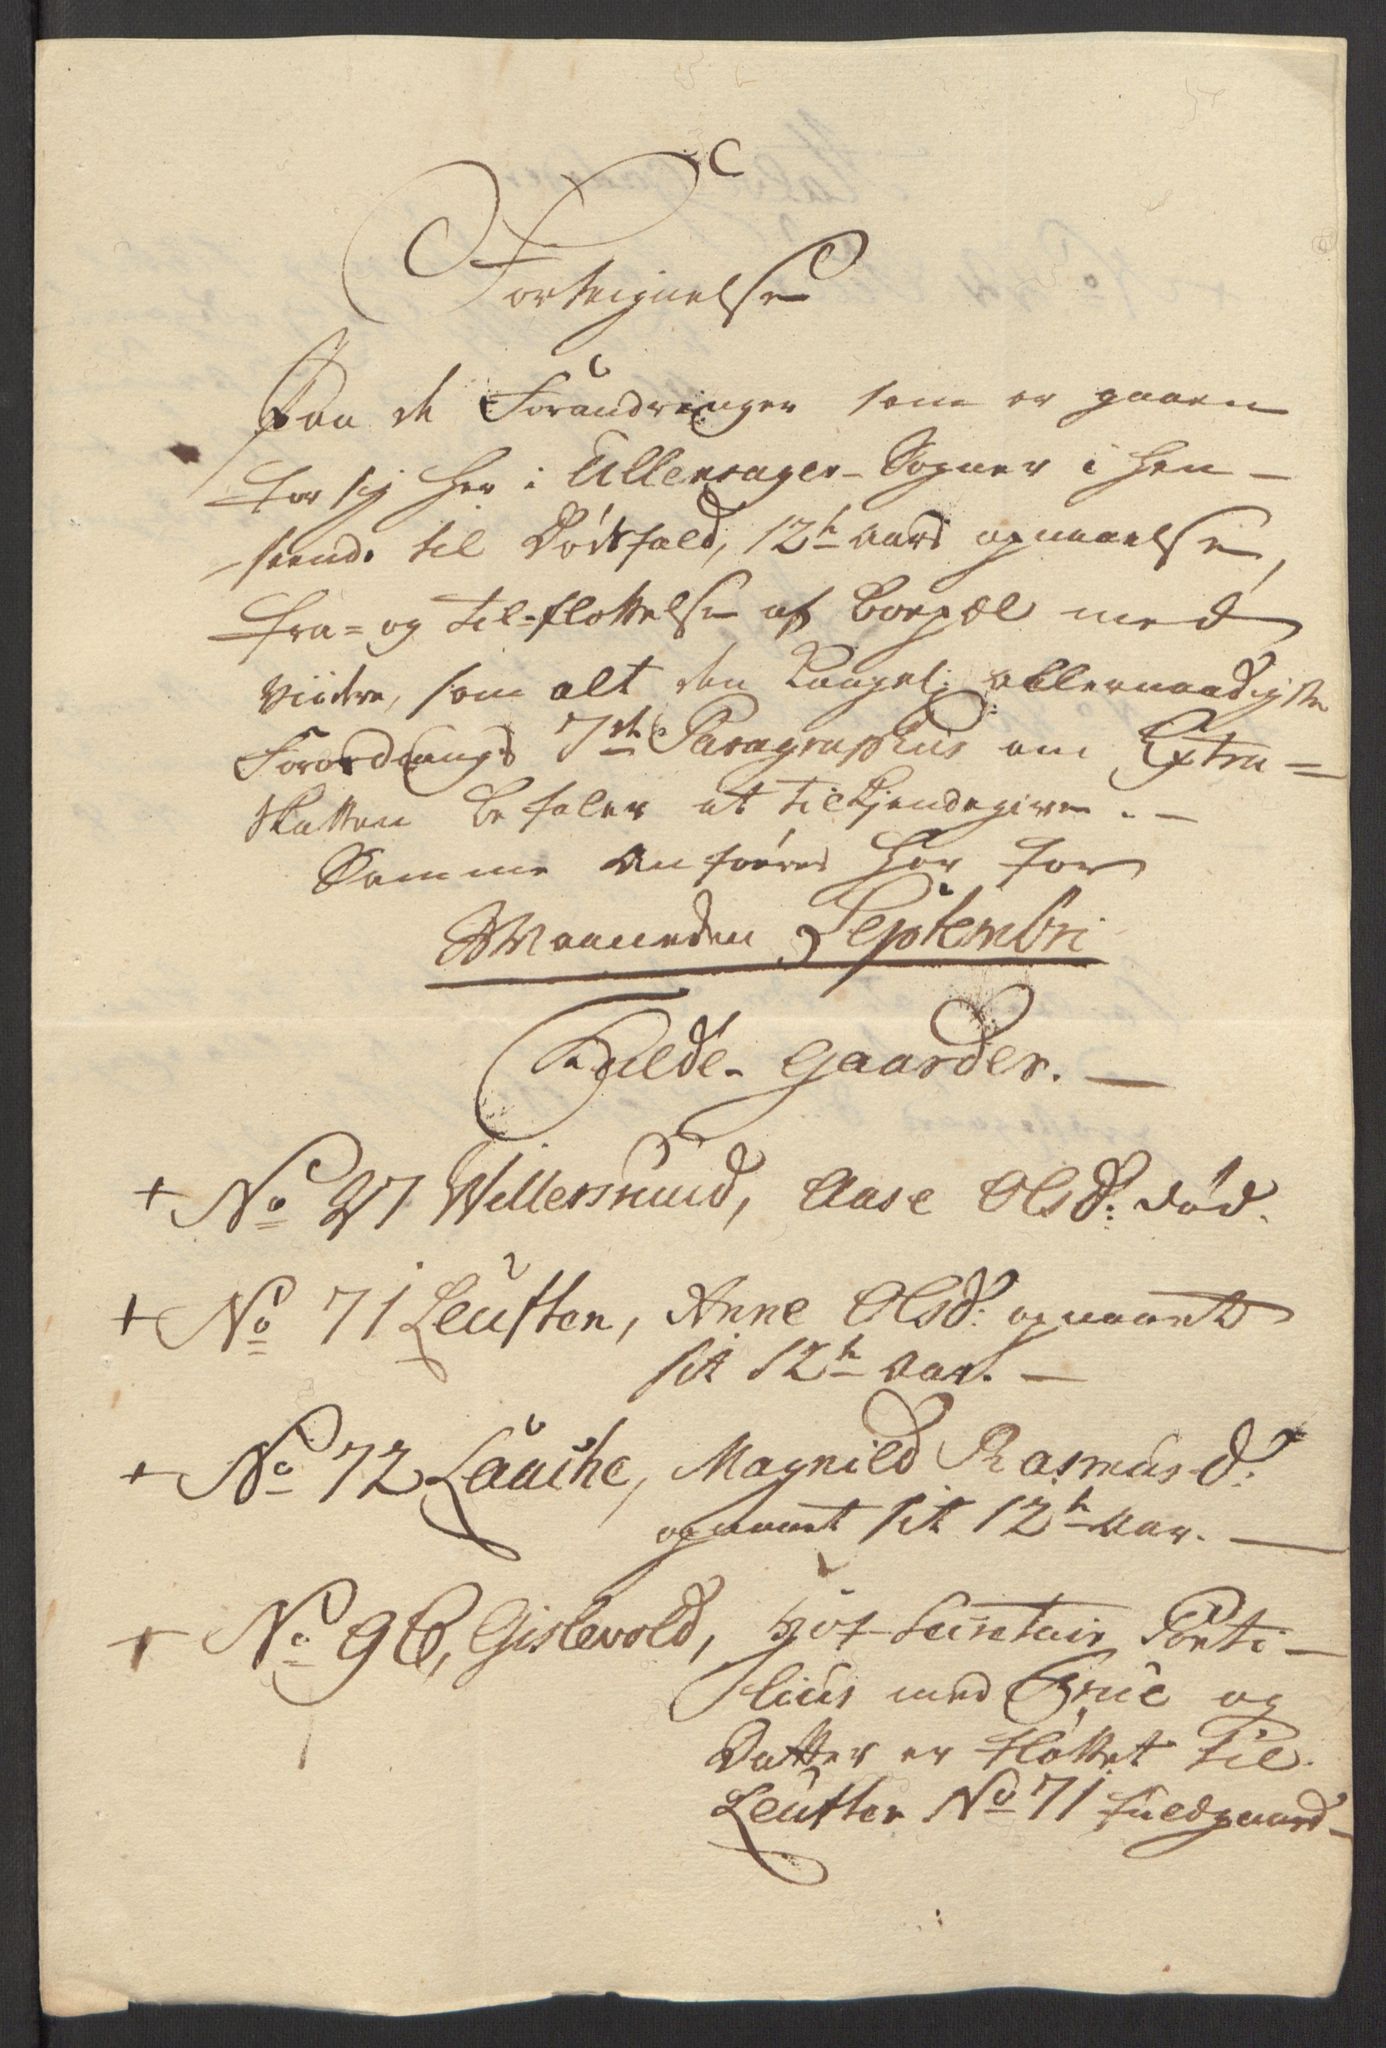 C
Forteignelse
Paa de Forandringer som er gaaen
for sig her i Ullensager Sogner i hen-
seende til Dødsfald, 12te aars opnaaelse,
fra- og til-flottelse af Boepæl med
viidere, som alt den Kongel: allernaadigste
Forordnings 7de Paragraphus om Extra-
Skatten befaler at tilkjendegive. -
Samme anføres her for
Maaneden Septembri
Fulde-Gaarder. -
+ No 27 Willersrud, Aase Olsd: død.
+ No 71 Leutten, Anne Olsd: opnaaet
sit 12te Aar. -
+ No 72 Lauche, Magnild Rasmusd:
opnaaet sit 12te Aar. -
+ No 96, Gislevold, Hof-Secretair Ponti-
med Frue og
Datter er flottet til
Leutten No 71 fuldgaard -